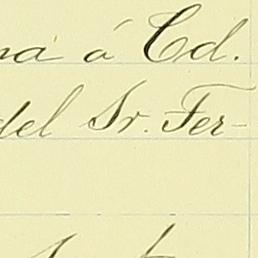 na á Cd.
del Sr. Fer-